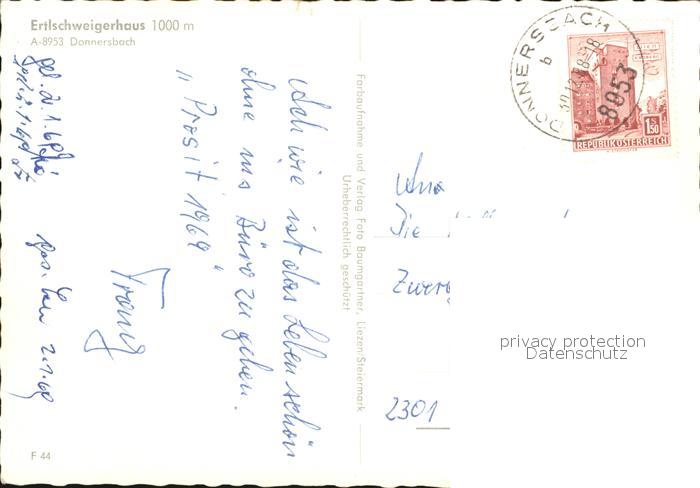 Ertlschweigerhaus 1000 m
A-8953 Donnersbach
Ach wie ist das Leben schön
ohne ins Büro zu gehen.
„Prosit 1969"
Franz
2.1.69
F 44
Farbaufnahme und Verlag Foto Baumgartner, Liezen/Steiermark
Urheberrechtlich geschützt
DONNERSBACH
b
8953
WIEN
ERDBERG
1.50
REPUBLIK ÖSTERREICH
Die
2301
privacy protection
Datenschutz